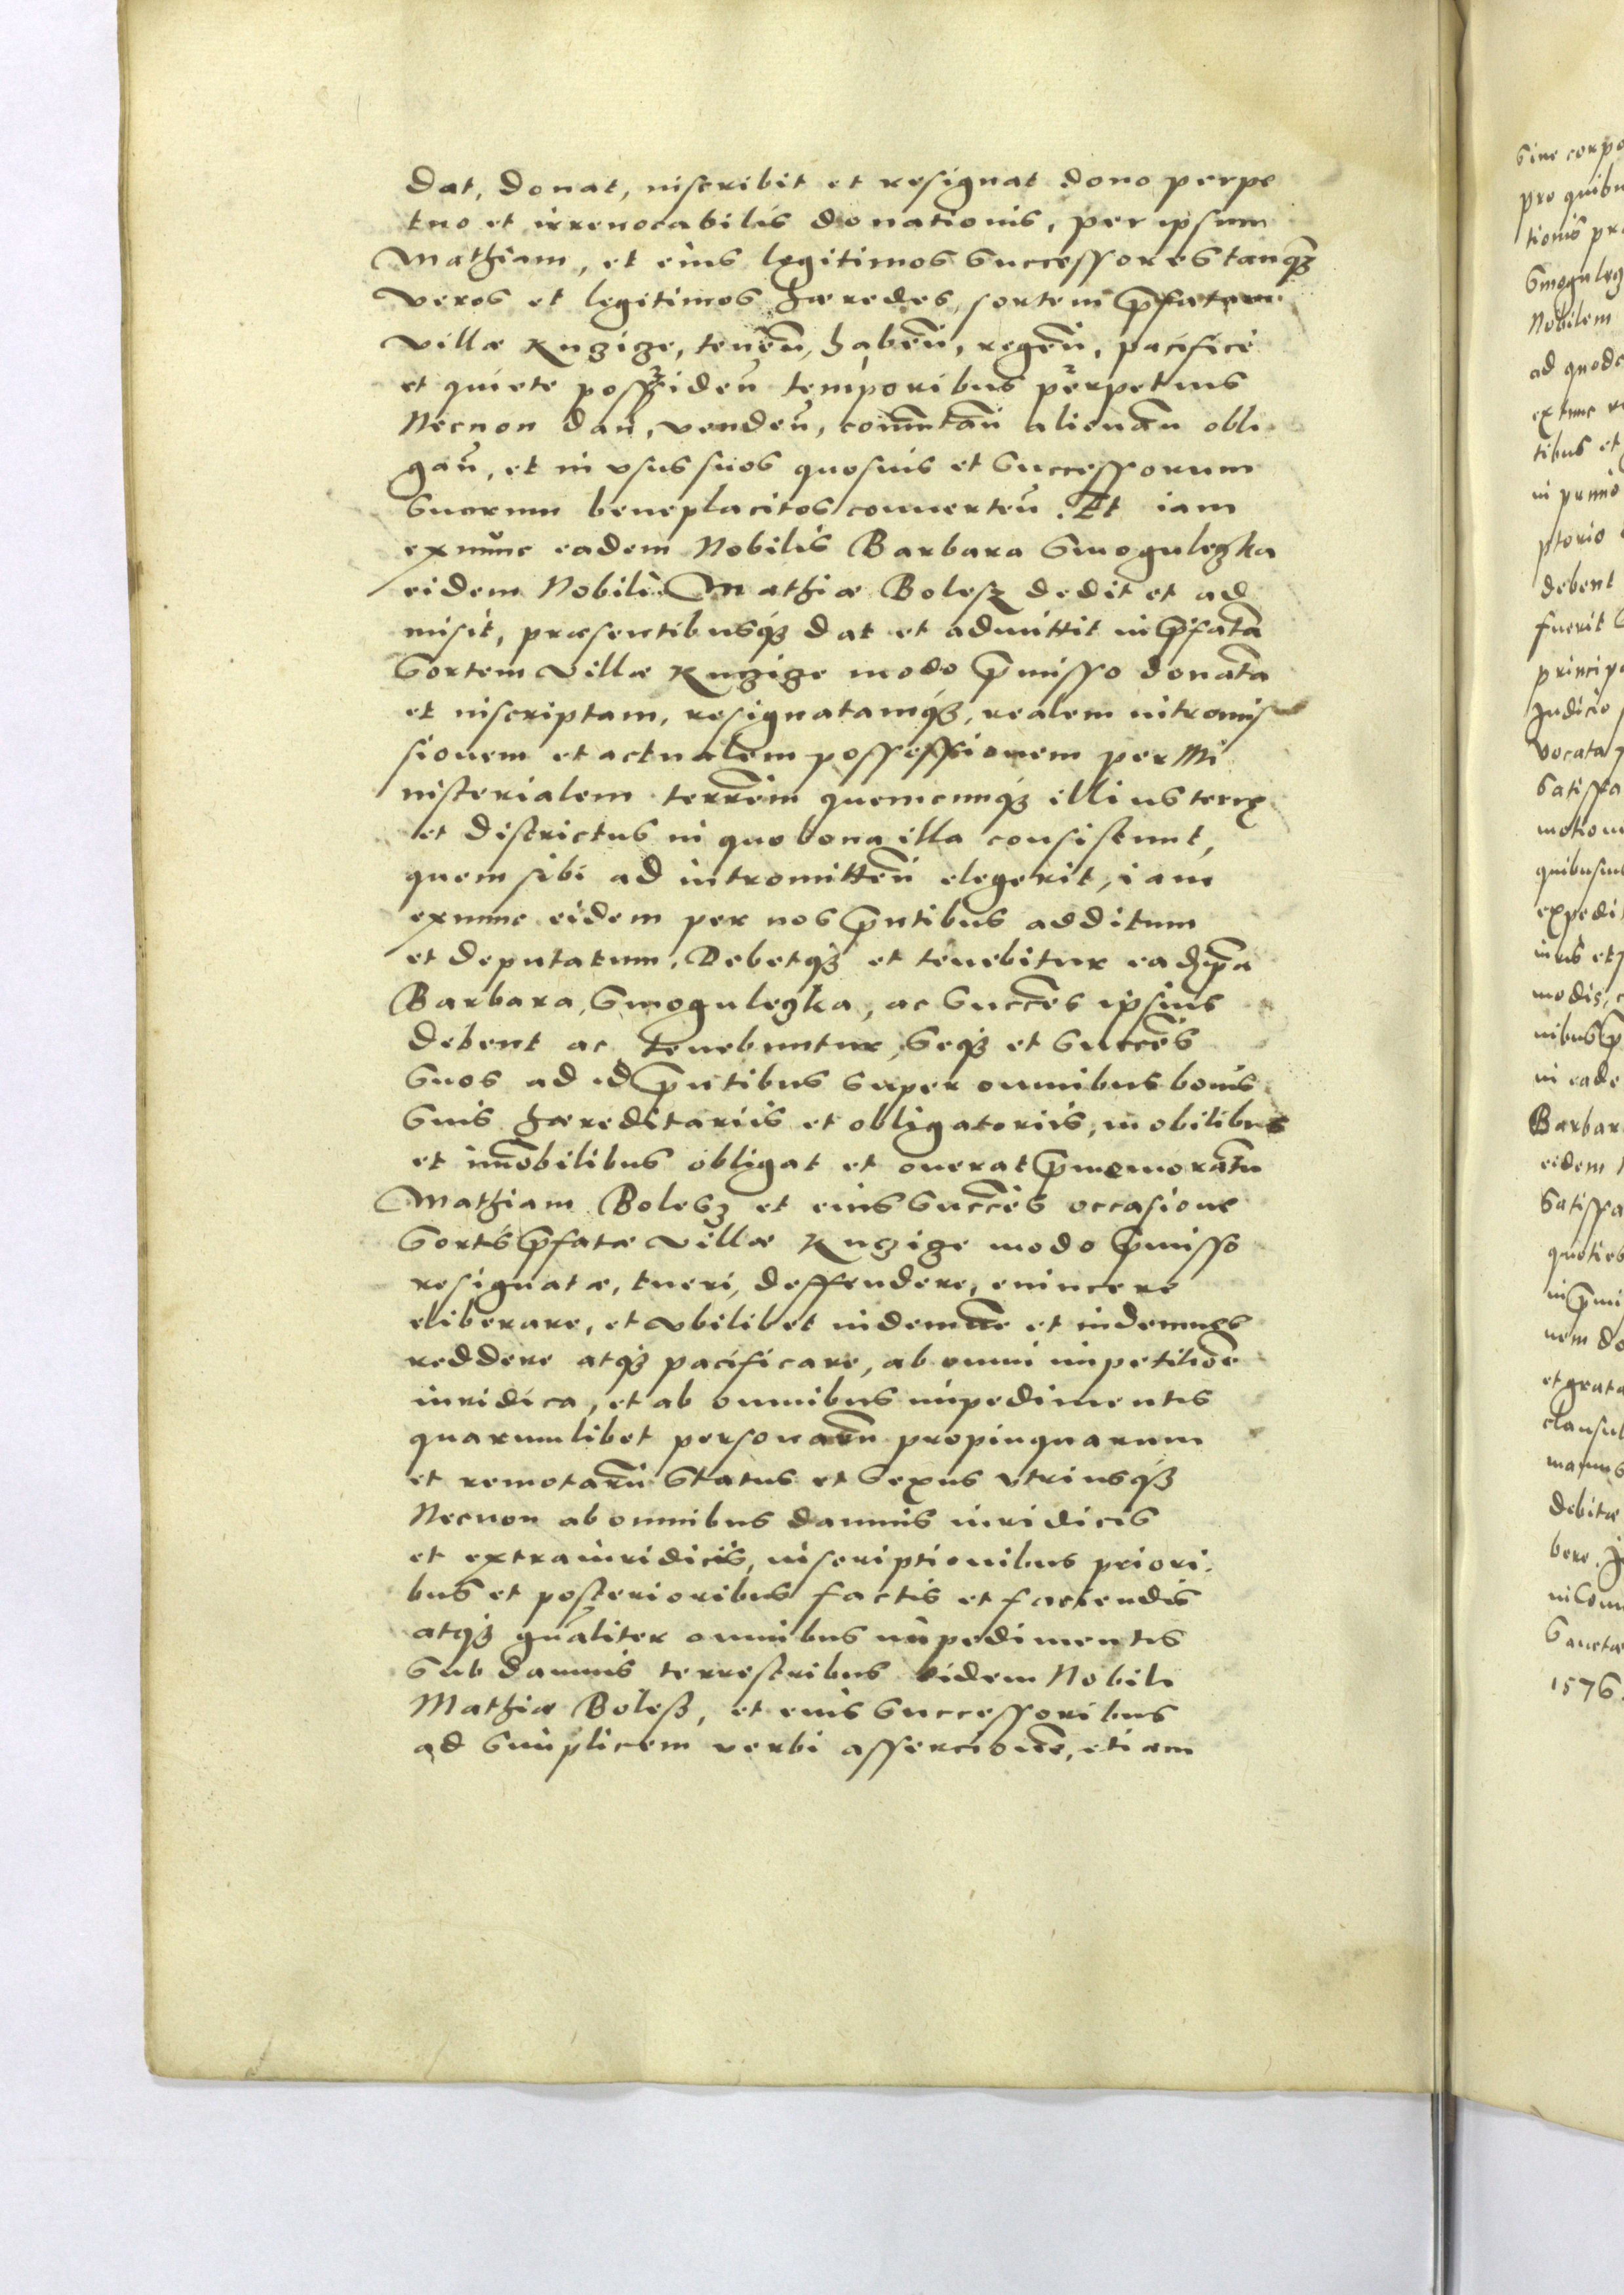 dat, donat, inscribit et resignat dono perpe
tuo et irreuocabilis donationis, per ipsum
Mathiam, et eius legitimos Successores tanq̃ʒ
veros et legitimos hæredes, sortem p̃fatam
villæ Kuzize, teneñ, habeñ, regeñ, pacificè
et quiete possideñ temporibus perpetuis
Necnon dañ, vendeñ, com̃utañ alienañ obli
gañ, et in vsus suos quosuis et Successorum
Suorum beneplacitos conuerteñ. Et iam
exnunc eadem Nobilis Barbara Smogulezka
eidem Nobili Mathiæ Bolesz dedit et ad
misit, præsentibusqʒ dat et admittit in p̃fatã
Sortem villæ Kuzize modo p̃misso donatã
et inscriptam, resignatamqʒ, realem intromis
sionem et actualem possessionem per Mi
nisterialem terrẽm quemcunqʒ illius terræ
et districtus in quo bona illa consistunt,
quem sibi ad intromitteñ elegerit, iam
exnunc eidem per nos p̃ntibus additum
et deputatum. Debetqʒ et tenebitur ead p̃ta
Barbara Smogulezka, ac Succẽs ipsius
debent ac tenebuntur, Seqʒ et Succẽs
Suos ad id p̃ntibus super omnibus bonis
Suis hæreditariis et obligatoriis, mobilibus
et im̃obilibus obligat et onerat p̃memoratũ
Mathiam Bolesz et eius Succẽs occasione
Sortis p̃fatæ villæ Kuzize modo p̃misso
resignatæ, tueri, deffendere, euincere
eliberare, et vbilibet indemnẽ et indemnes
reddere atqʒ pacificare, ab omni impetitiõe
iuridica, et ab omnibus impedimentis
quarumlibet personarũ propinquarum
et remotarũ Status et Sexus vtriusqʒ
Necnon ab omnibus damnis iuridicis
et extraiuridicis, inscriptionibus priori,
bus et posterioribus factis et faciendis
atqʒ gñaliter omnibus impedimentis
Sub damnis terrestribus eidem Nobili
Mathiæ Bolesz, et eius Successoribus
ad Simplicem verbi assercionẽ, etiam
Siue corpo
pro quibu
tionis pr
Smogulez
Nobilem
ad quod
exnunc
tibus et
in primo
ptorio
debent
fuerit
princip
Judicio
vocata
Satisfa
motion
quibusuis
expedi
iuris et
modis,
nibus p̃
in eade
Barbar
eidem
Satisfa
quoties
in p̃mi
nem do
et grata
clausul
manus
debitæ
bere.
Sanctæ
1576.